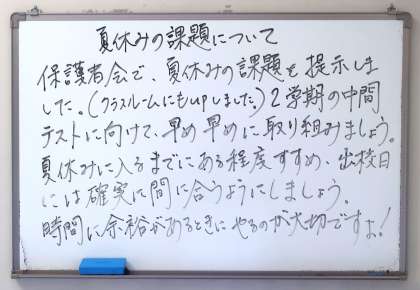 夏休みの課題について
保護者会で、夏休みの課題を提示しま
した。(クラスルームにもupしました。)2学期の中間
テストに向けて、早め早めに取り組みましょう。
夏休みに入るまでにある程度すすめ、出校日
には確実に間に合うようにしましょう。
時間に余裕があるときにやるのが大切ですよ!